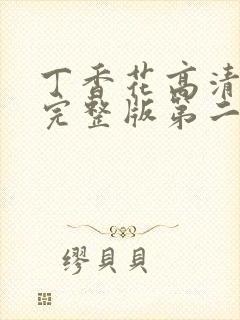 丁香花高清
完整版第二
缪貝貝